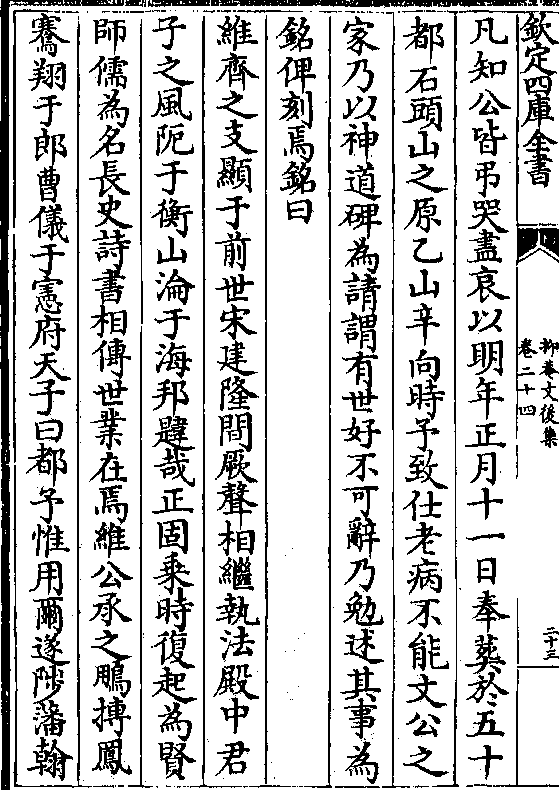 欽定四庫全書
抑菴文後集
卷二十四
二十三
凡知公皆弔哭盡哀以明年正月十一日奉葬於五十
都石頭山之原乙山辛向時予致仕老病不能文公之
家乃以神道碑為請謂有世好不可辭乃勉述其事為
銘俾刻焉銘曰
維齊之支顯于前世宋建隆間厥聲相繼執法殿中君
子之風阨于衡山淪于海邦韙哉正固乗時復起為賢
師儒為名長史詩書相傳世業在焉維公承之鵬摶鳳
騫翔于郎曹儀于憲府天子曰都予惟用爾遂陟藩翰